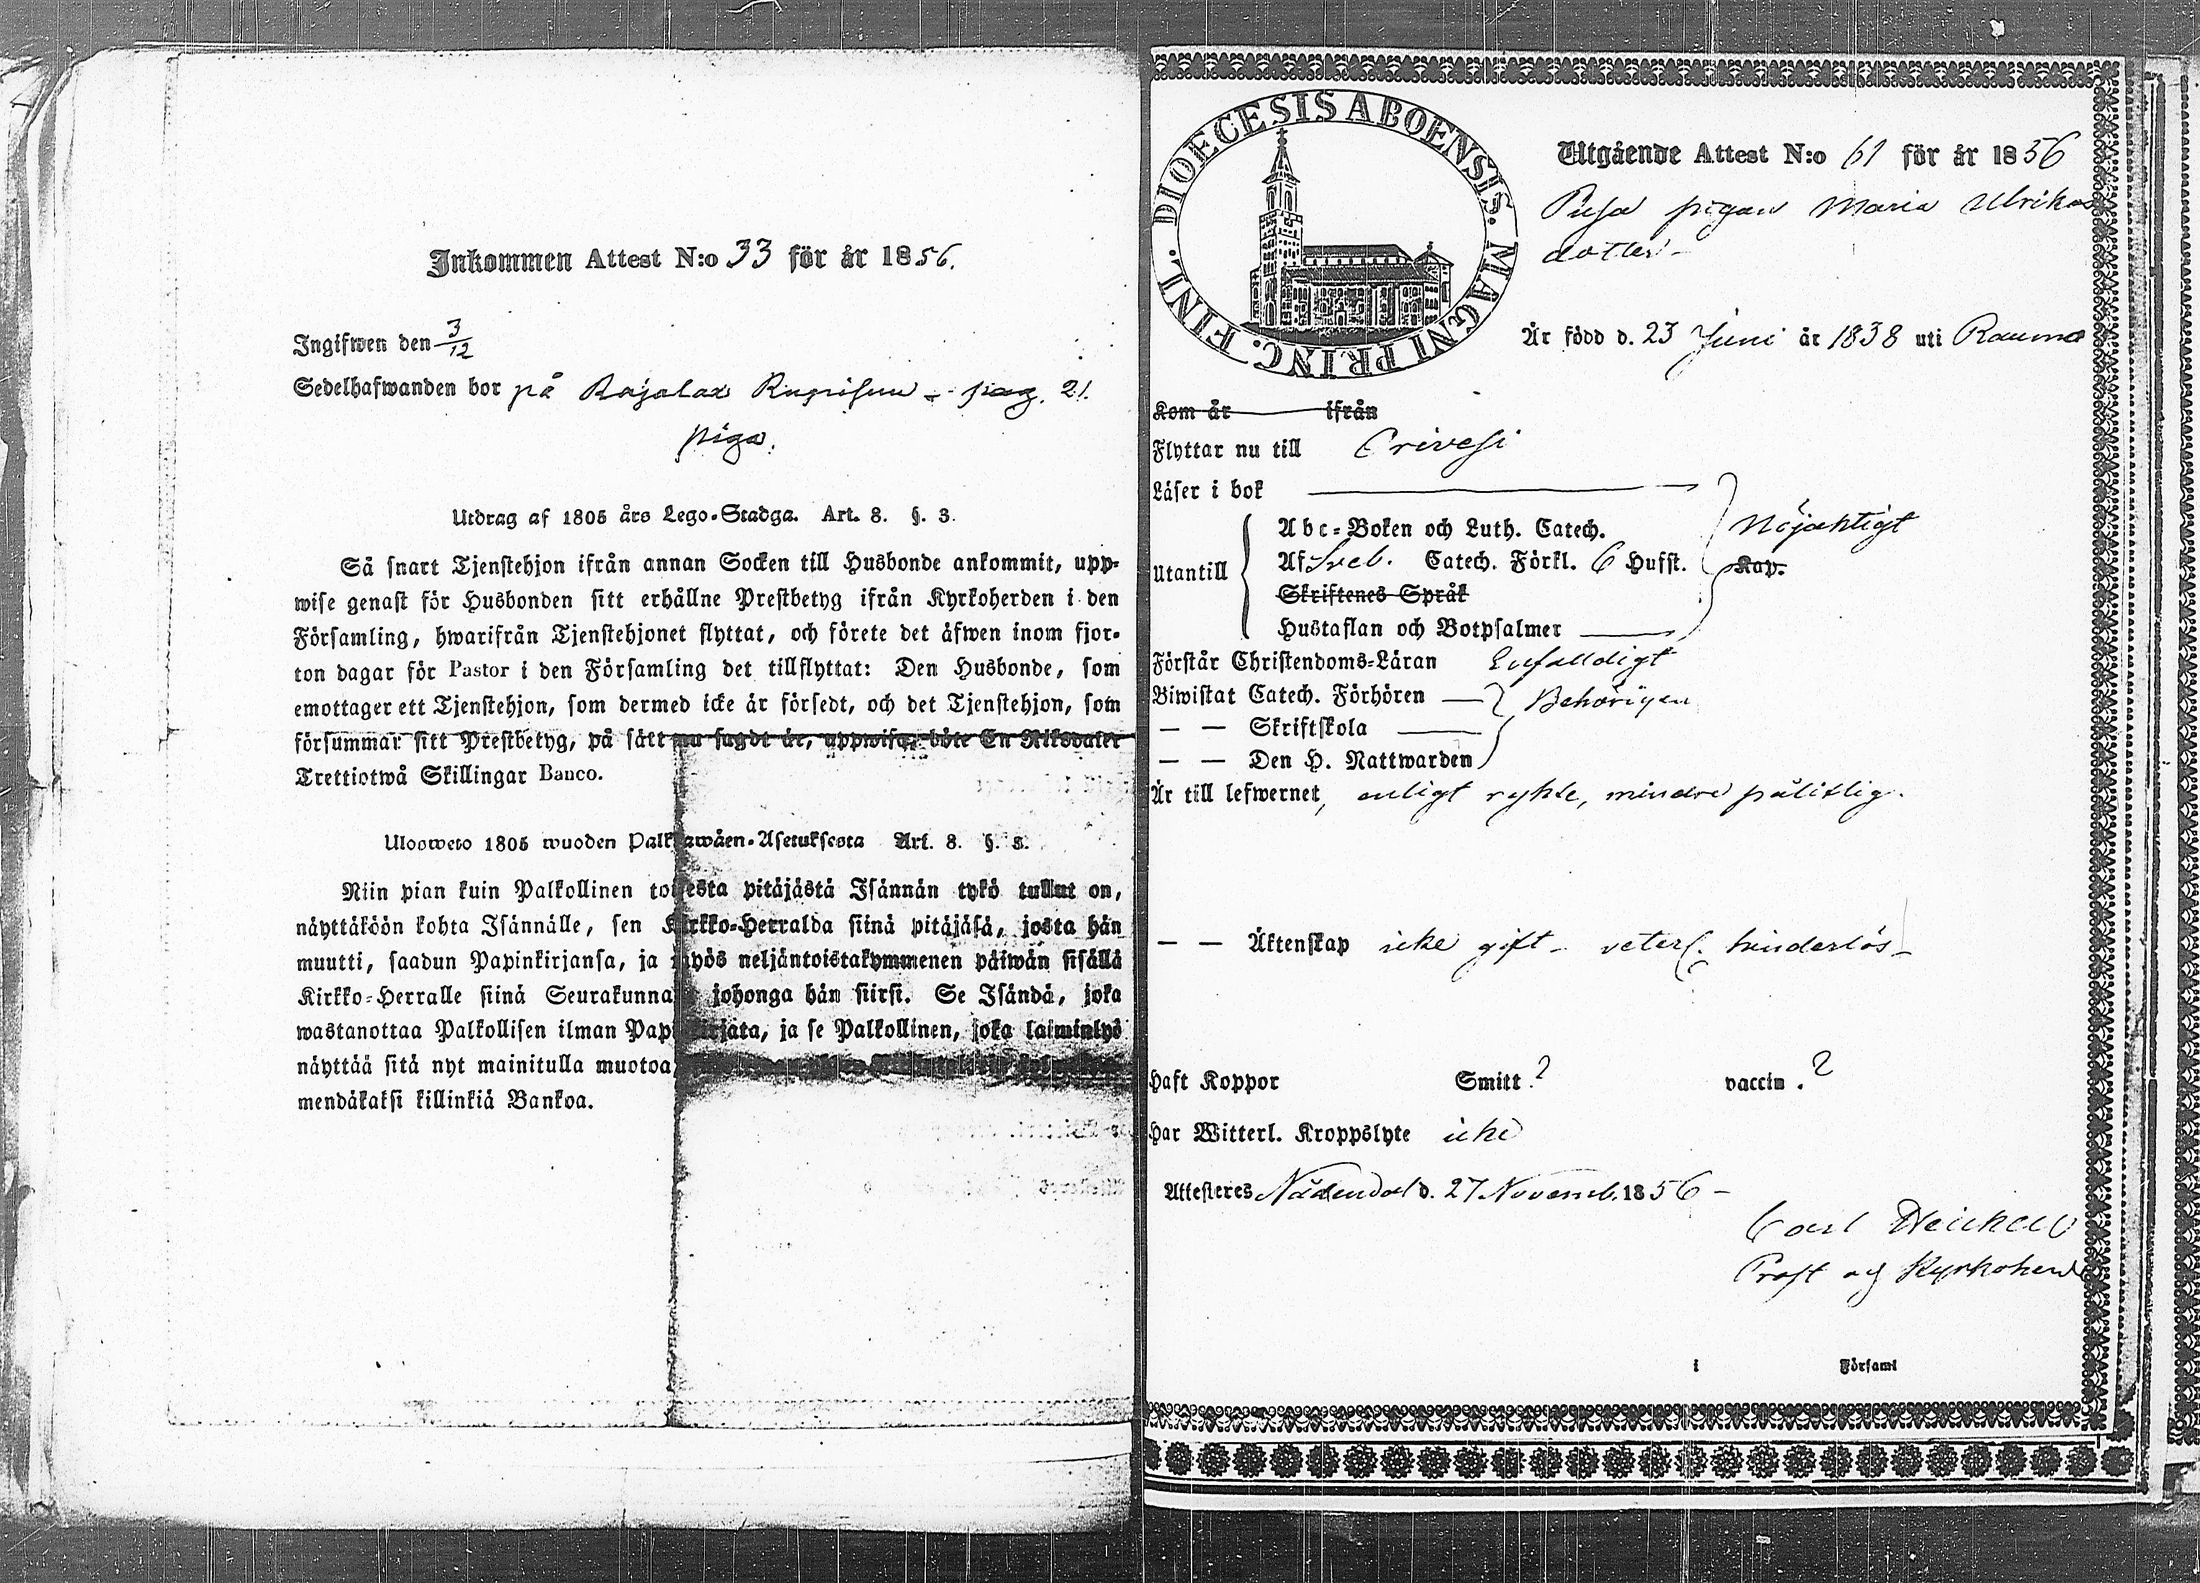 Inkommen Attest N:o 33 för år 1856.
Ingifwen den 3/12
Sedelhafwanden bor på Rajalax pag. 21.
piga.
Utdrag af 1805 års Lego-Stadga. Art. 8. §. 3.
Så snart Tjenstehjon ifrån annan Socken till Husbonde ankommit, upp-
wise genast för Husbonden sitt erhållne Prestbetyg ifrån Kyrkoherden i den
Församling, hwarifrån Tjenstehjonet flyttat, och förete det äfwen inom fjor-
ton dagar för Pastor i den Församling det tillflyttat: Den Husbonde, som
emottager ett Tjenstehjon, som dermed icke är försedt, och det Tjenstehjon, som
försummar sitt Prestbetyg, på sätt nu sagdt är, uppwisa, böte En Riksdaler
Trettiotwå Skillingar Banco.
Ulosweto 1805 wuoden Palkkawäen-Asetuksesta Art. 8. §. 3.
Niin pian kuin Palkollinen toisesta pitäjästä Isännän tykö tullut on,
näyttäköön kohta Isännälle, sen Kirkko-Herralda siinä pitäjäsä, josta hän
muutti, saadun Papinkirjansa, ja myös neljäntoistakymmenen päiwän sisällä
Kirkko-Herralle siinä Seurakunnasa johonga hän siirsi. Se Isändä, joka
wastanottaa Palkollisen ilman Papinkirjata, ja se Palkollinen, joka laiminlyö
näyttää sitä nyt mainitulla muotoa,
mendäkaksi killinkiä Bankoa.
DIOECESIS ABOENSIS. MAGNI PRINC. FINL.
Utgående Attest N:o 61 för år 1856
Pigan Maria Ulrikas
dotter
Är född d. 23 Juni år 1838 uti Rauma
Kom år ifrån
Flyttar nu till Orivesi
Läser i bok
Abc-Boken och Luth. Catech. Nöjaktigt
Utantill Af Sveb. Catech. Förkl. 6 Hufst. Kap.
Skriftenes Språk
Hustaflan och Botpsalmer
Förstår Christendoms-Läran Enfalldigt
Biwistat Catech. Förhören Behörigen
— — Skriftskola
— — Den H. Nattwarden
Är till lefwernet, enligt rykte, mindre pålitlig.
— — Äktenskap icke gift - veterl. hinderlös
Haft Koppor Smitt. ? vaccin. ?
Har Witterl. Kroppslyte icke
Attesteres Nådendal d. 27 Novemb. 1856
Carl
Prost och Kyrkoherde
i Församl